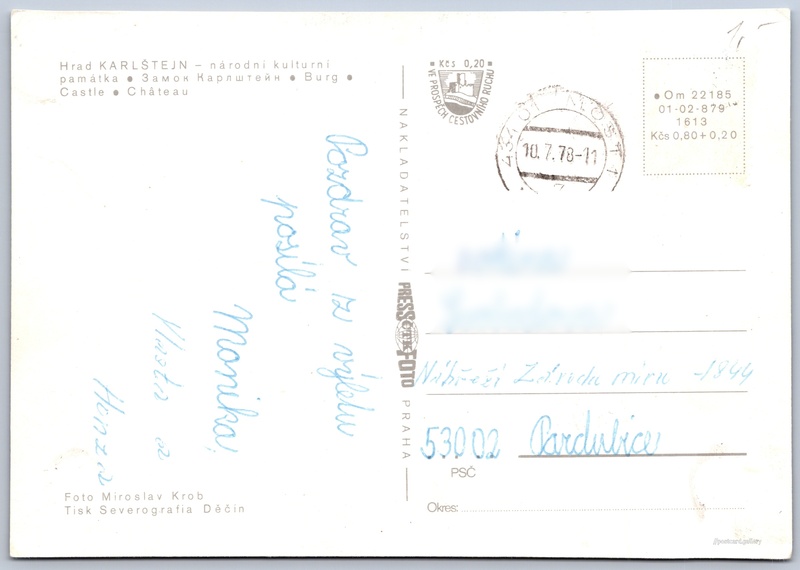 Hrad KARLŠTEJN – národní kulturní
památka ● Замок Карлштейн ● Burg ●
Castle ● Château
Pozdrav z výletu
posílá
Monika,
Vlasta a
Honza
Foto Miroslav Krob
Tisk Severografia Děčín
NAKLADATELSTVÍ PRESSFOTO PRAHA
Kčs 0,20
VE PROSPĚCH CESTOVNÍHO RUCHU
10.7.78-11
1,-
● Om 22185
01-02-879
1613
Kčs 0,80+0,20
Nábřeží Závodu míru -1844
53002 Pardubice
PSČ
Okres: